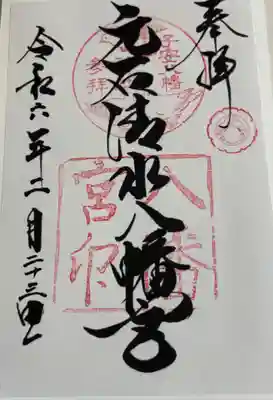 奉拝
元石清水八幡宮
八幡
宮印
令和六年二月二十三日